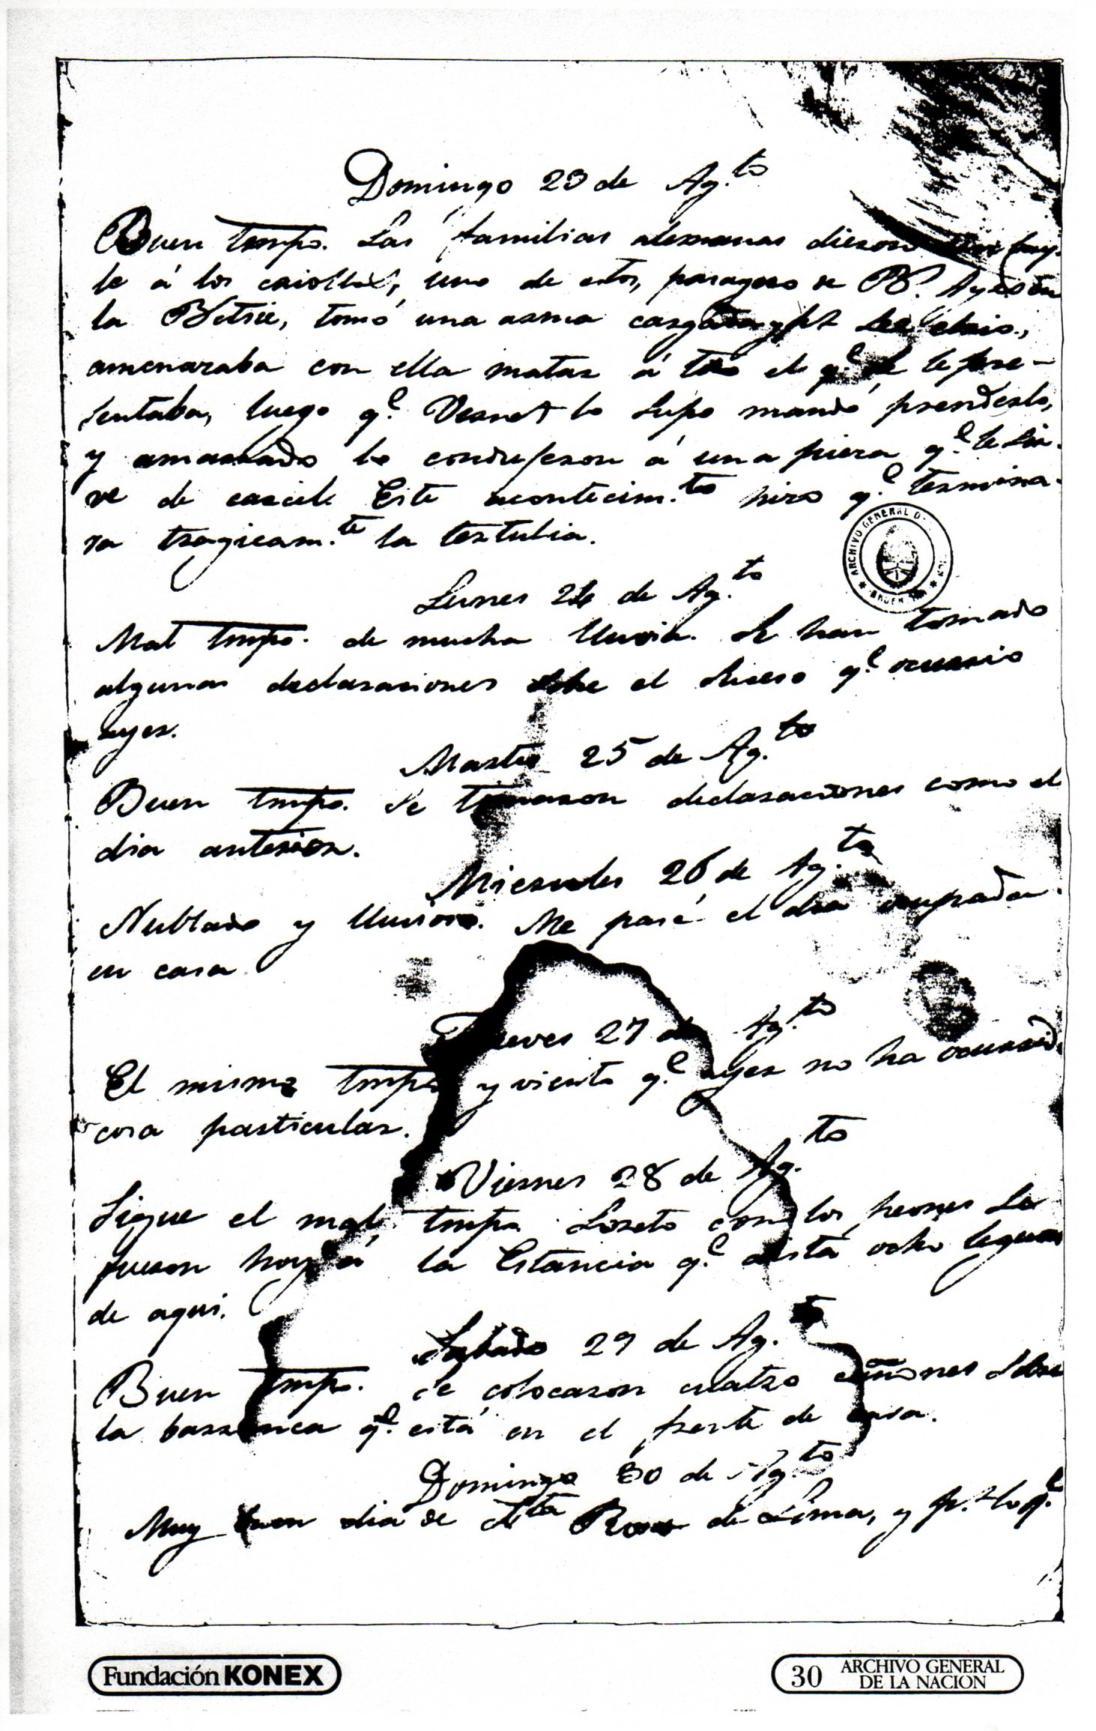 Domingo 23 de Ag.to
Buen tmpo. Las familias alemanas dieron un bay-
le á los criollos, uno de estos, paraguayo de
la tomó una arma cargada y
amenazaba con ella matar á todo el q.e se le pre-
sentaba, luego q.e Vernet lo supo mandó prenderlo,
y amarrado lo condujeron á una pieza q.e le sir-
ve de carcel. Este acontecim.to hizo q.e termina-
ra tragicam.te la tertulia.
ARCHIVO GENERAL DE
Lunes 24 de Ag.to
Mal tmpo. de mucha lluvia. Se han tomado
algunas declaraciones sobre el suceso q.e ocurrio
ayer.
Martes 25 de Ag.to
Buen tmpo. Se tomaron declaraciones como el
dia anterior.
Miercoles 26 de Ag.to
Nublado y lluvioso. Me pasé el dia ocupada
en casa
Jueves 27 de Ag.to
El mismo tmpo y viento q.e ayer no ha ocurrido
cosa particular.
Viernes 28 de Ag.to
Sigue el mal tmpo Loreto con los peones se
fueron hoy á la Estancia q.e está ocho leguas
de aqui.
Sabado 29 de Ag.to
Buen tmpo. Se colocaron cuatro cañones sobre
la barranca q.e está en el frente de casa.
Domingo 30 de Ag.to
Muy buen dia de Sta Rosa de Lima, y p.r lo q.e
Fundación KONEX
30 ARCHIVO GENERAL
DE LA NACION